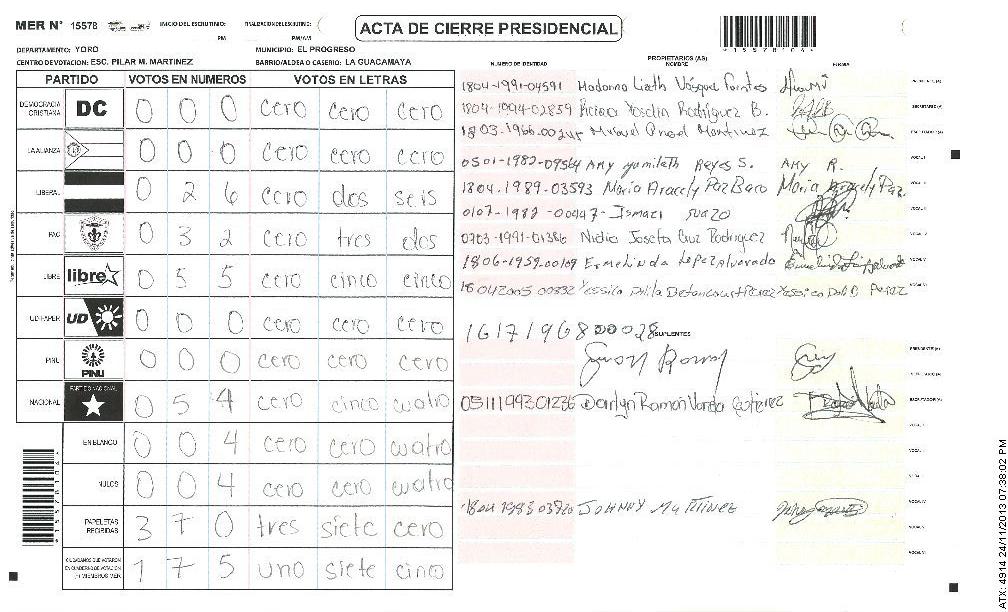 MER N° 15578 INICIO DEL ESCRUTINIO: PM FINALIZACION DEL ESCRUTINIO: PM/AM
ACTA DE CIERRE PRESIDENCIAL
DEPARTAMENTO: YORO MUNICIPIO: EL PROGRESO
CENTRO DE VOTACION: ESC. PILAR M. MARTINEZ BARRIO/ALDEA O CASERIO: LA GUACAMAYA
PARTIDO VOTOS EN NUMEROS VOTOS EN LETRAS
DEMOCRACIA CRISTIANA DC 0 0 0 cero cero cero
LA ALIANZA 0 0 0 cero cero cero
LIBERAL 0 2 6 cero dos seis
PAC 0 3 2 cero tres dos
LIBRE libre 0 5 5 cero cinco cinco
UD-FAPER UD 0 0 0 cero cero cero
PINU PINU 0 0 0 cero cero cero
NACIONAL PARTIDO NACIONAL 0 5 4 cero cinco cuatro
EN BLANCO 0 0 4 cero cero cuatro
NULOS 0 0 4 cero cero cuatro
PAPELETAS RECIBIDAS 3 7 0 tres siete cero
CIUDADANOS QUE VOTARON EN CUADERNO DE VOTACION (+) MIEMBROS MER 1 7 5 uno siete cinco
PROPIETARIOS (AS)
NUMERO DE IDENTIDAD NOMBRE FIRMA
1804-1991-04591 Vásquez
1804-1994-02859 Yoselin Rodríguez B.
1803-1966- Angel Martinez
0501-1982-09564 Amy Yamileth Reyes S. Amy R.
1804-1989-03593 Maria Aracely Paz Baco Maria Aracely Paz
0107-1982-00447 Ismael Suazo
0703-1991-01386 Nidia Josefa Cruz Rodriguez
1806-1959-00109 Ermelinda Lopez Alvarado
18042005 00332 Yessica Dalila Betancourt Perez
1617196800028
SUPLENTES
0511199301236 Darlyn Ramon Varda Gutierrez
1804 1983 03920 JOHNNY MARTINEZ
ATX: 4914 24/11/2013 07:38:02 PM